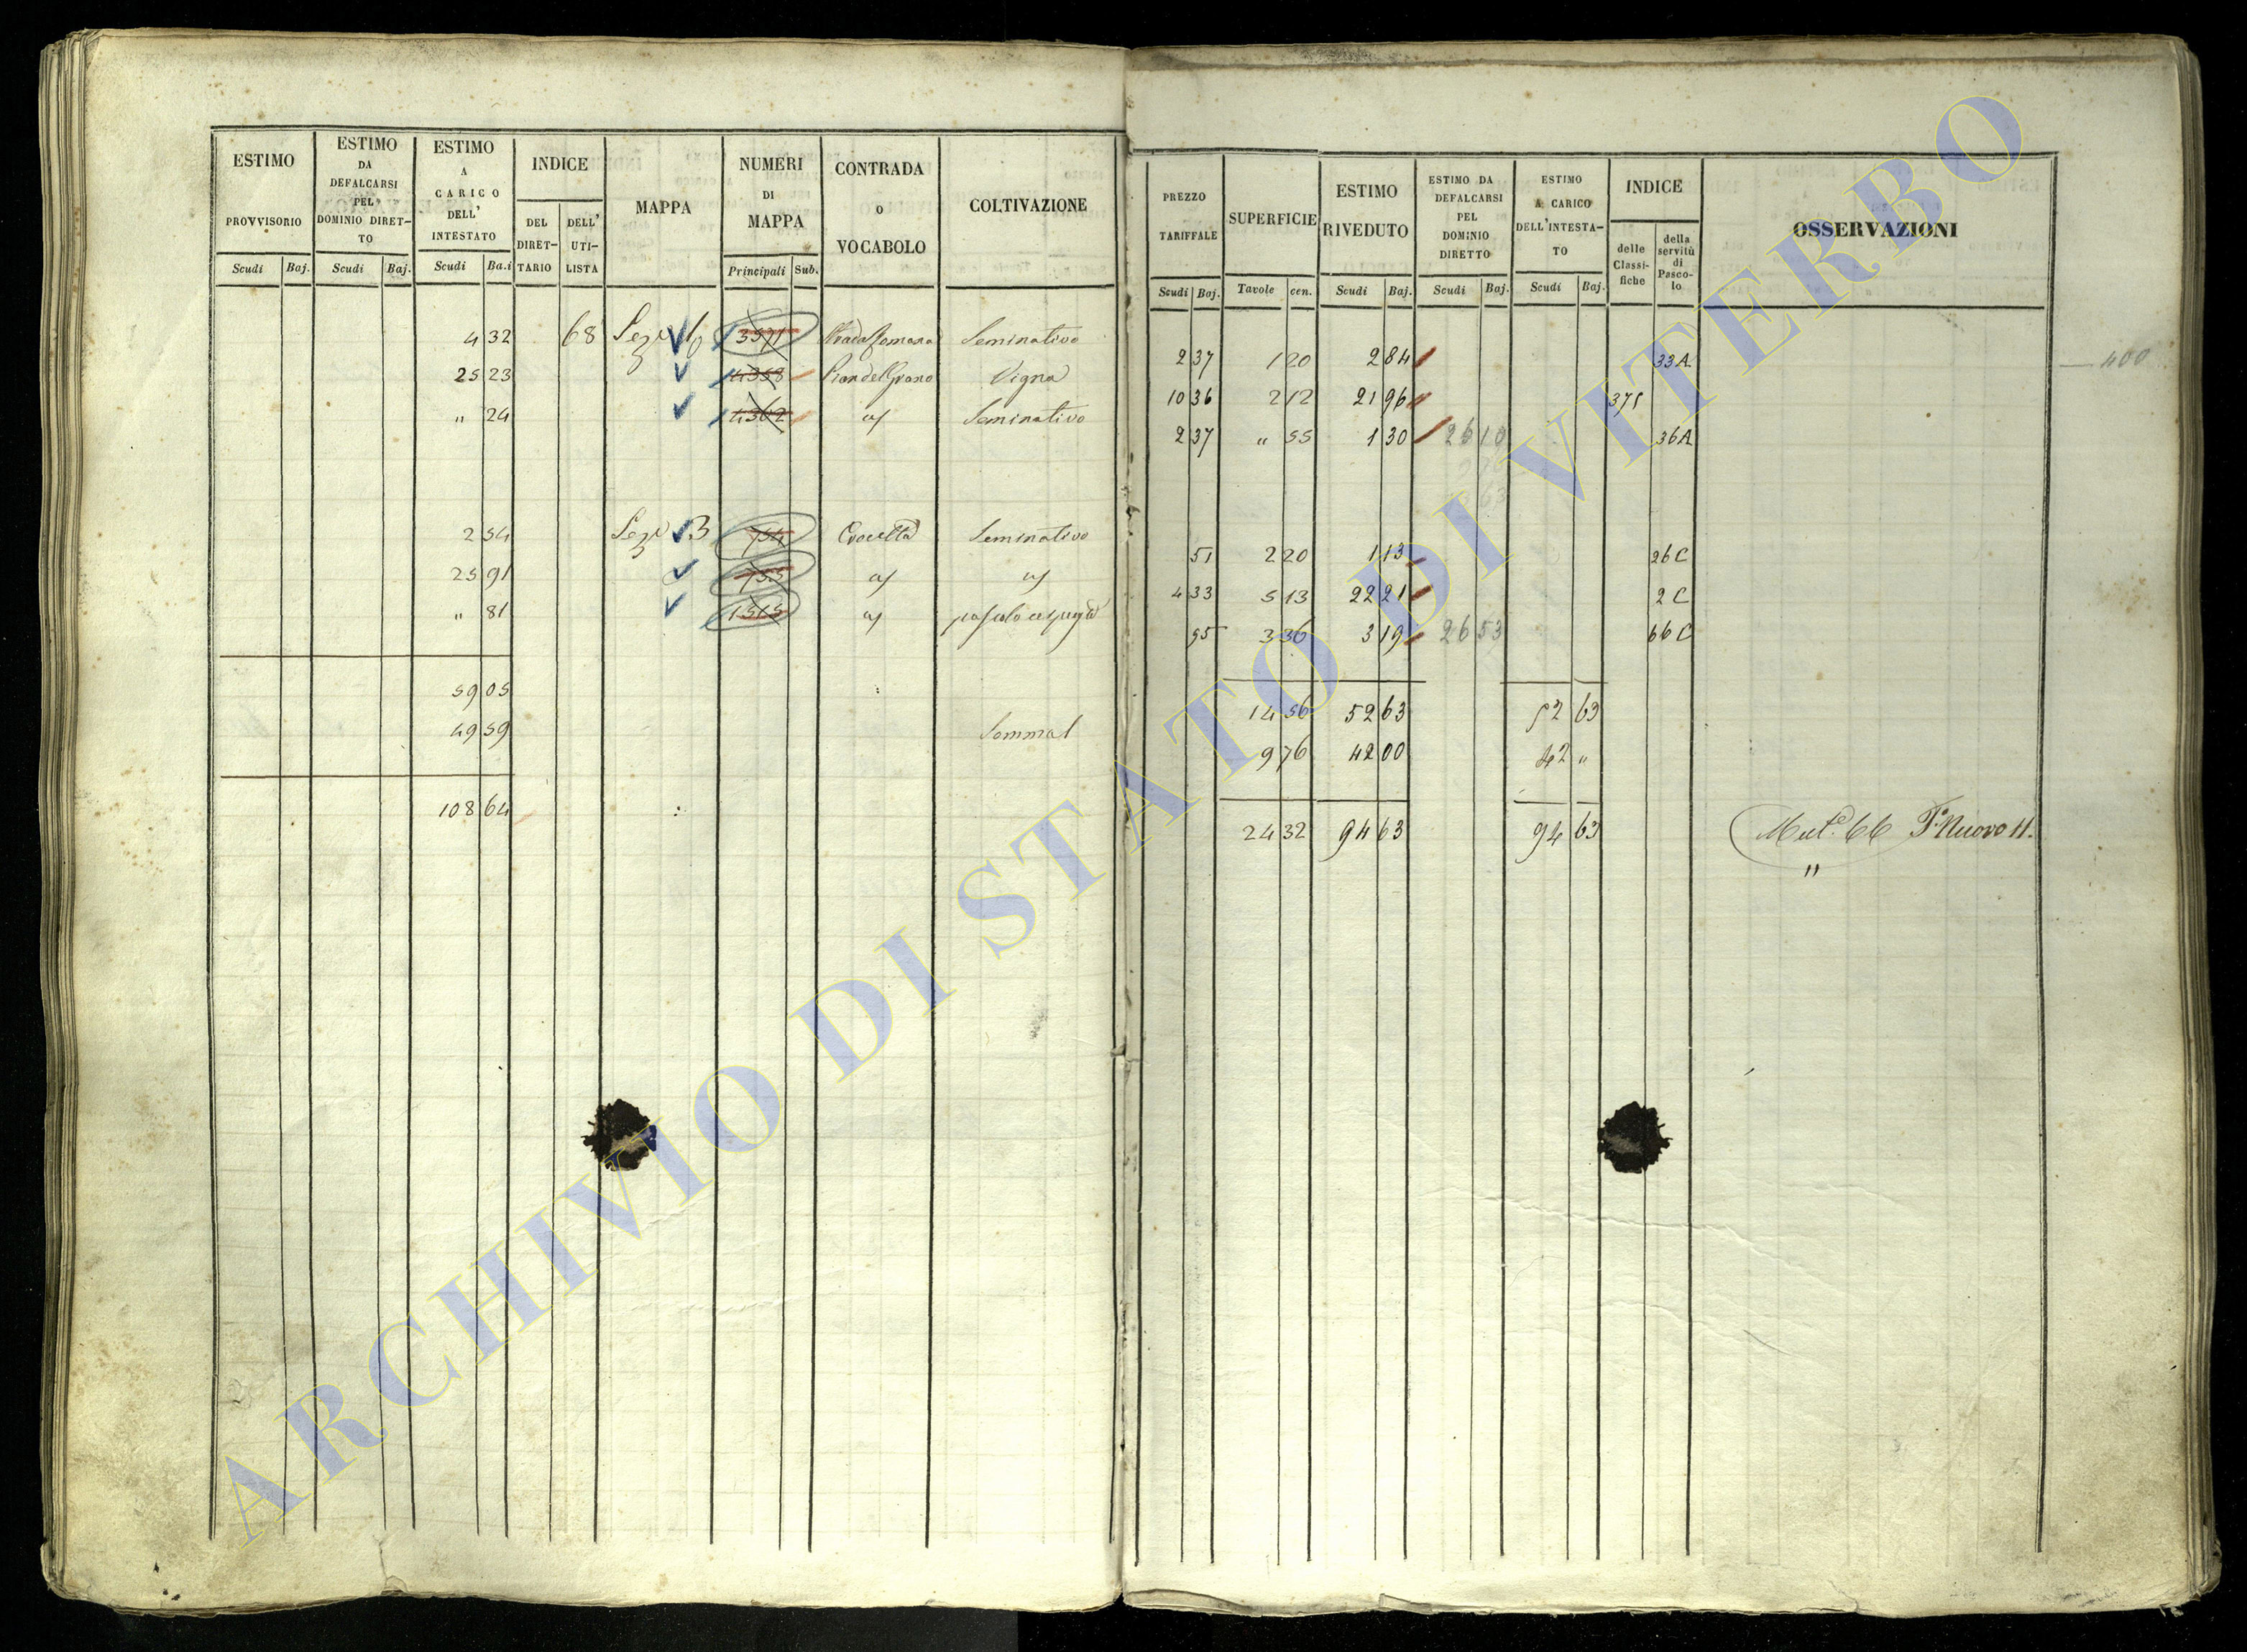 ESTIMO PROVVISORIO
Scudi Baj.
ESTIMO DA DEFALCARSI PEL DOMINIO DIRETTO
Scudi Baj.
ESTIMO A CARICO DELL' INTESTATO
Scudi Ba.i
INDICE
DEL DIRETTARIO
DELL' UTILISTA
MAPPA
NUMERI DI MAPPA
Principali Sub.
CONTRADA O VOCABOLO
COLTIVAZIONE
4 32 68 Strada Romana Seminativo
25 23 4358 Pian del Grano Vigna
" 24 4362 Seminativo
2 54 754 Crocetta Seminativo
25 91 755
" 81 1515
59 05
49 59 Somma
108 64
PREZZO TARIFFALE
Scudi Baj.
SUPERFICIE
Tavole cen.
ESTIMO RIVEDUTO
Scudi Baj.
ESTIMO DA DEFALCARSI PEL DOMINIO DIRETTO
Scudi Baj.
ESTIMO A CARICO DELL'INTESTATO
Scudi Baj.
INDICE
delle Classifiche
della servitù di Pascolo
OSSERVAZIONI
2 37 1 20 2 84 33A 400
10 36 2 12 21 96 375
2 37 " 55 1 30 26 10 36A
51 2 20 1 13 26C
4 33 5 13 22 21 2C
95 3 36 3 19 26 53 66C
14 56 52 63 52 63
9 76 42 00 42 "
24 32 94 63 94 63 66 Nuovo 11.
"
ARCHIVIO DI STATO DI VITERBO